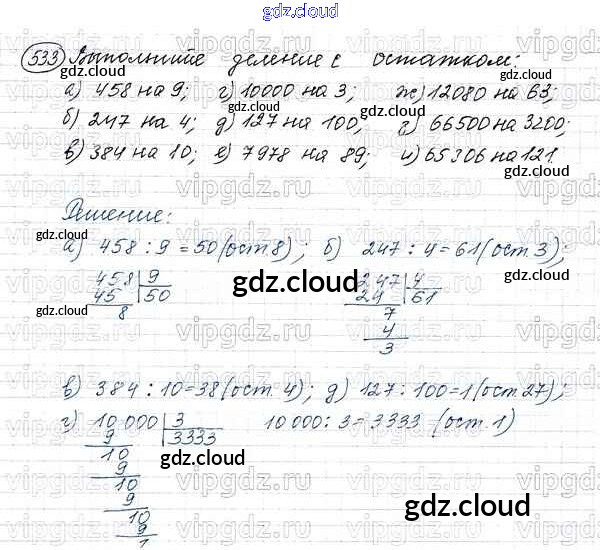 gdz.cloud
533 Выполните деление с остатком:
а) 458 на 9; г) 10000 на 3; ж) 12080 на 63;
б) 247 на 4; д) 127 на 100; з) 66500 на 3200;
в) 384 на 10; е) 7978 на 89; и) 65306 на 121.
Решение:
а) 458 : 9 = 50 (ост. 8); б) 247 : 4 = 61 (ост. 3);
458 | 9 247 | 4
45 50 24 61
8 7
4
3
в) 384 : 10 = 38 (ост. 4); д) 127 : 100 = 1 (ост. 27);
г) 10 000 | 3 10 000 : 3 = 3333 (ост. 1)
9 3333
10
9
10
9
10
9
1
gdz.cloud
vipgdz.ru